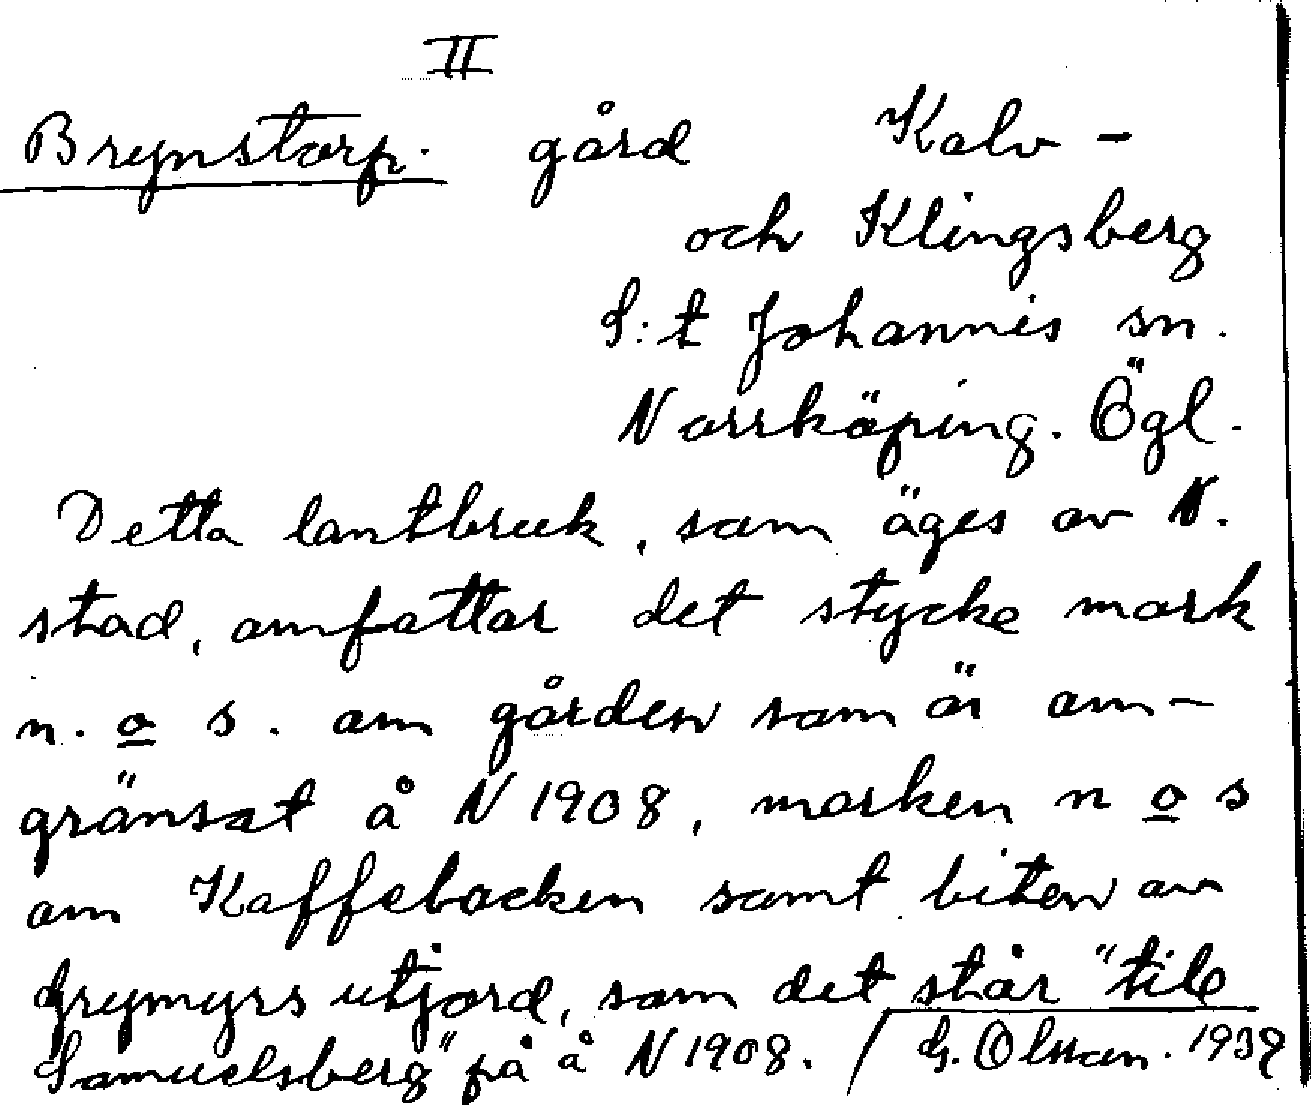 II
Brynstorp. gård Kalv -
och Klingsberg
S:t Johannis sn.
Norrköping. Ögl.
Detta lantbruk, som äges av N.
stad, omfattar det stycke mark
n. o s. om gården som är om-
gränsat å N 1908, marken n o s
om Kaffebacken samt biten av
Grymyrs utjord, som det står "till
Samuelsberg" på å N 1908. / G. Olsson. 1939